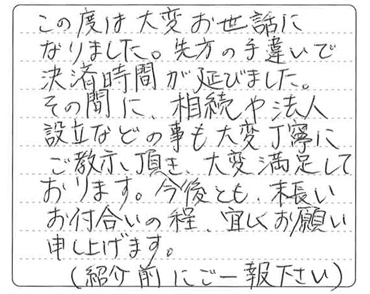 この度は大変お世話に
なりました。先方の手違いで
決済時間が延びました。
その間に、相続や法人
設立などの事も大変丁寧に
ご教示頂き、大変満足して
おります。今後とも、末長い
お付合いの程、宜しくお願い
申し上げます。
(紹介前にご一報下さい)